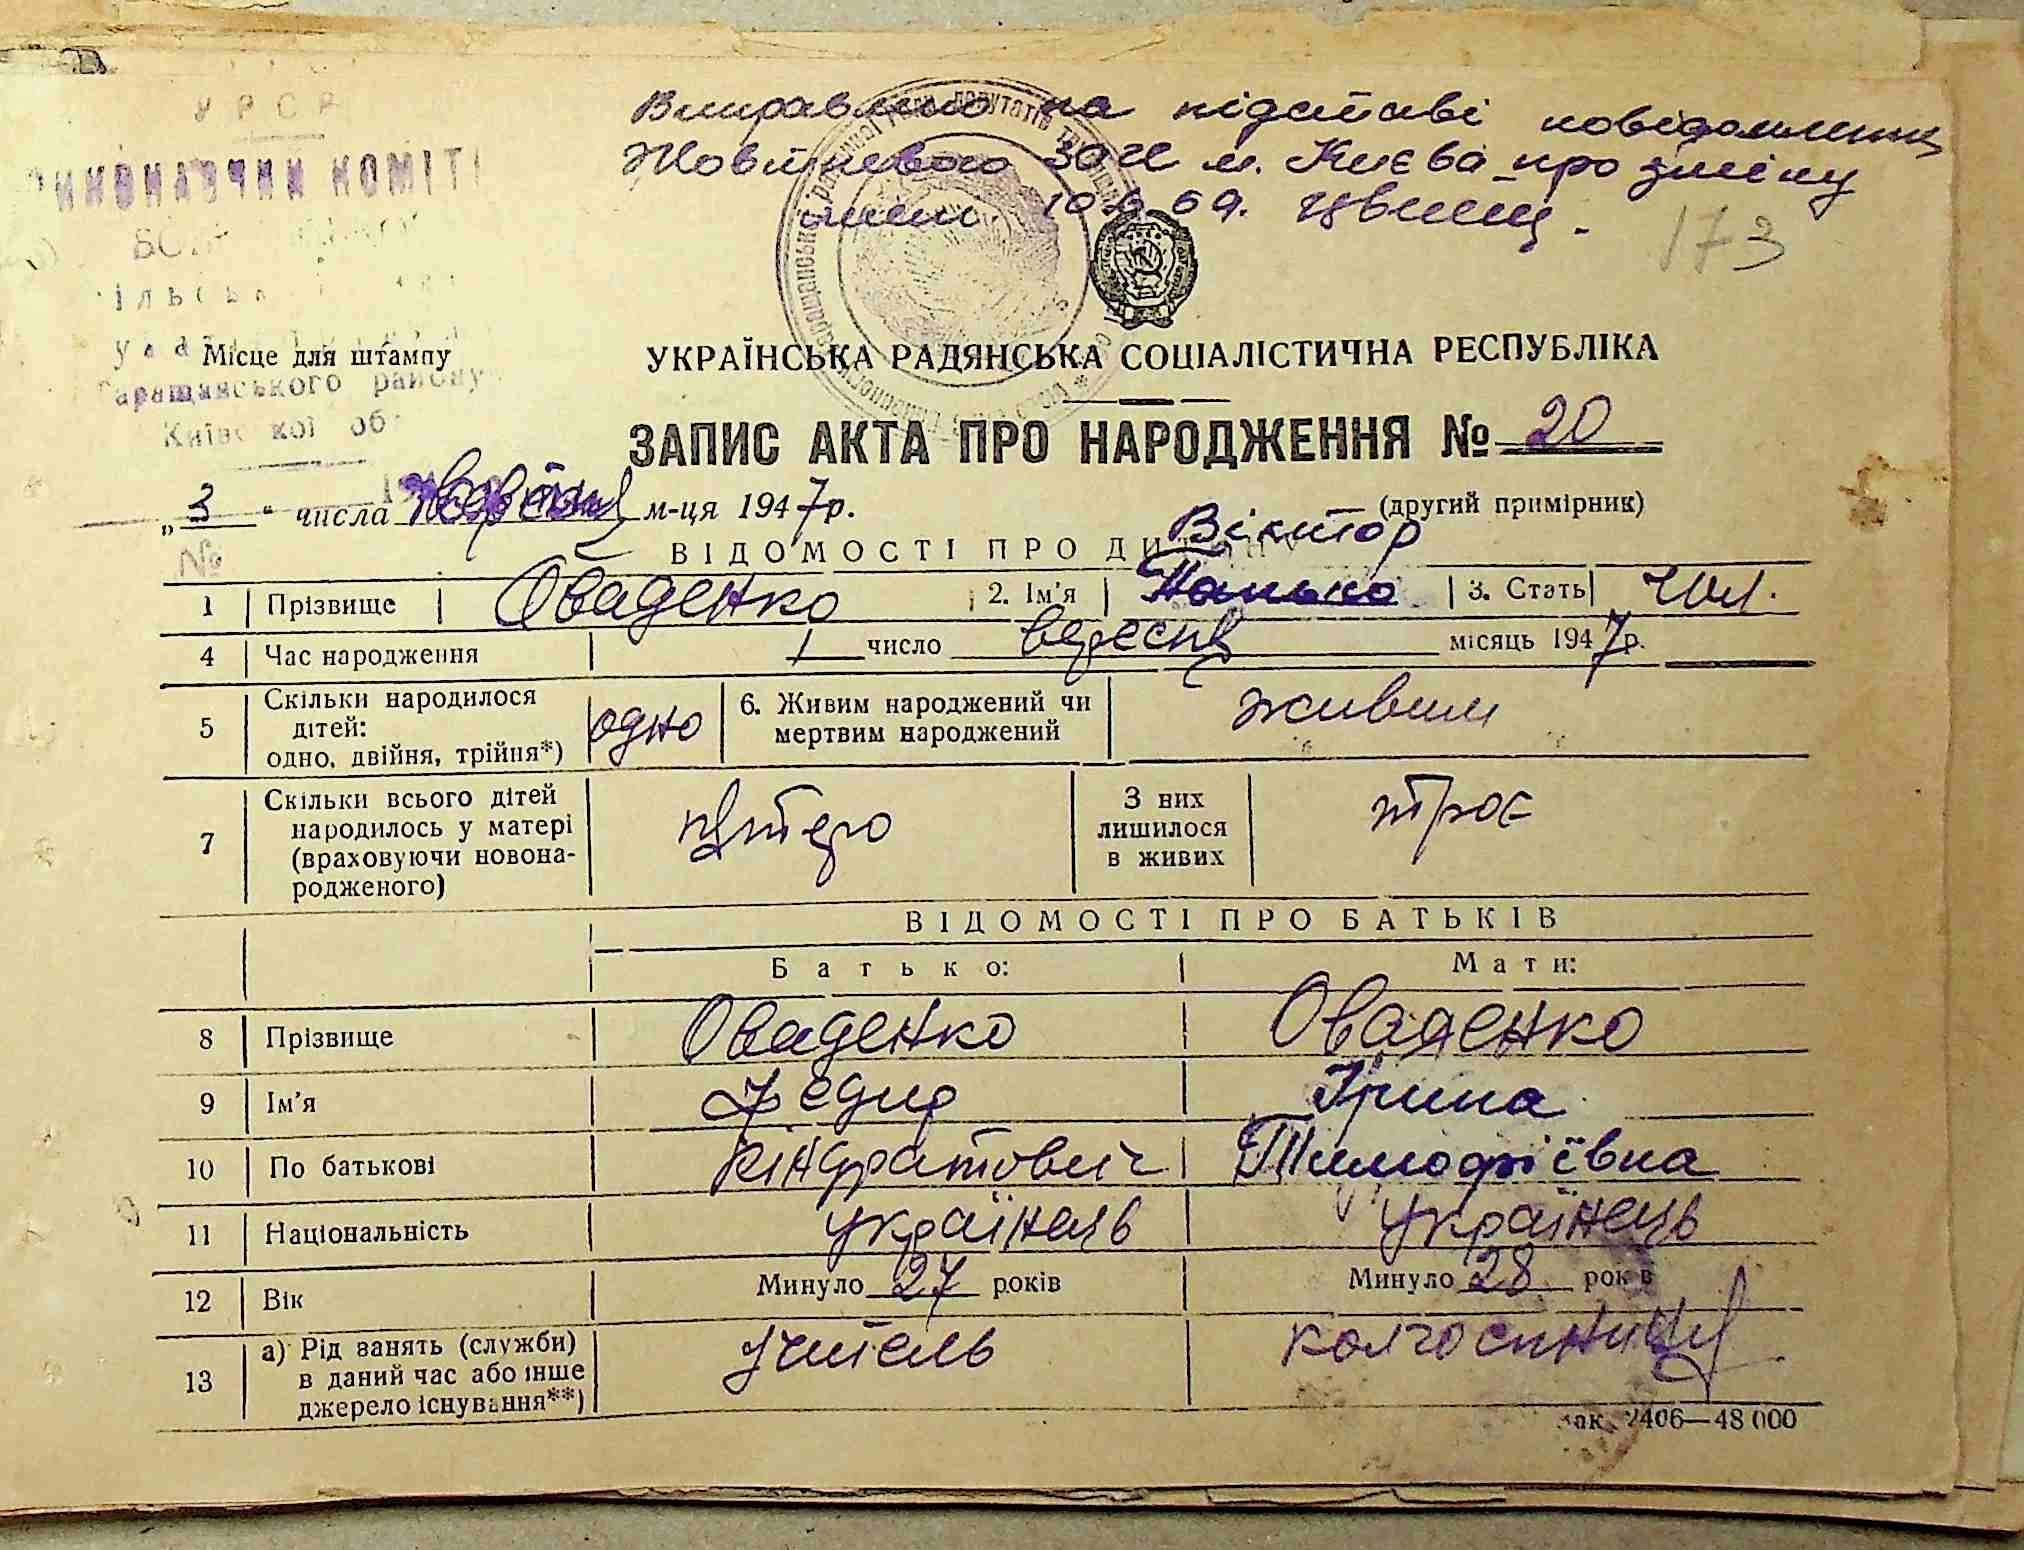 Виправлено на підставі повідомлення
Жовтневого ЗАГС м. Києва про зміну
імені 10
УРСР
ВИКОНАВЧИЙ КОМІТ
Таращанського району
Київської об
Місце для штампу
173
УКРАЇНСЬКА РАДЯНСЬКА СОЦІАЛІСТИЧНА РЕСПУБЛІКА
ЗАПИС АКТА ПРО НАРОДЖЕННЯ № 20
„3“ числа м-ця 1947р.
(другий примірник)
ВІДОМОСТІ ПРО ДИТИНУ
Віктор
№
1 Прізвище Оваденко 2. Ім'я 3. Стать чол.
4 Час народження 1 число вересня місяць 1947р.
5 Скільки народилося дітей: одно, двійня, трійня*) одно 6. Живим народжений чи мертвим народжений живим
7 Скільки всього дітей народилось у матері (враховуючи новонародженого) пятеро З них лишилося в живих троє
ВІДОМОСТІ ПРО БАТЬКІВ
Батько: Мати:
8 Прізвище Оваденко Оваденко
9 Ім'я Федир Ірина
10 По батькові Кіндратович Тимофіївна
11 Національність українець українець
12 Вік Минуло 27 років Минуло 28 років
13 а) Рід занять (служби) в даний час або інше джерело існування**) учитель колгоспниця
зак. 2406—48 000